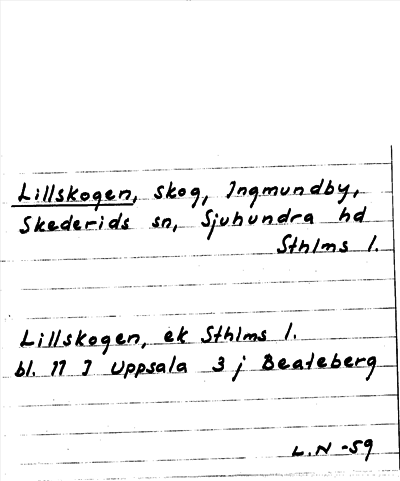 Lillskogen, skog, Ingmundby,
Skederids sn, Sjuhundra hd
Sthlms l.
Lillskogen, ek Sthlms l.
bl. 11 I Uppsala 3 j Beateberg
L.N -59